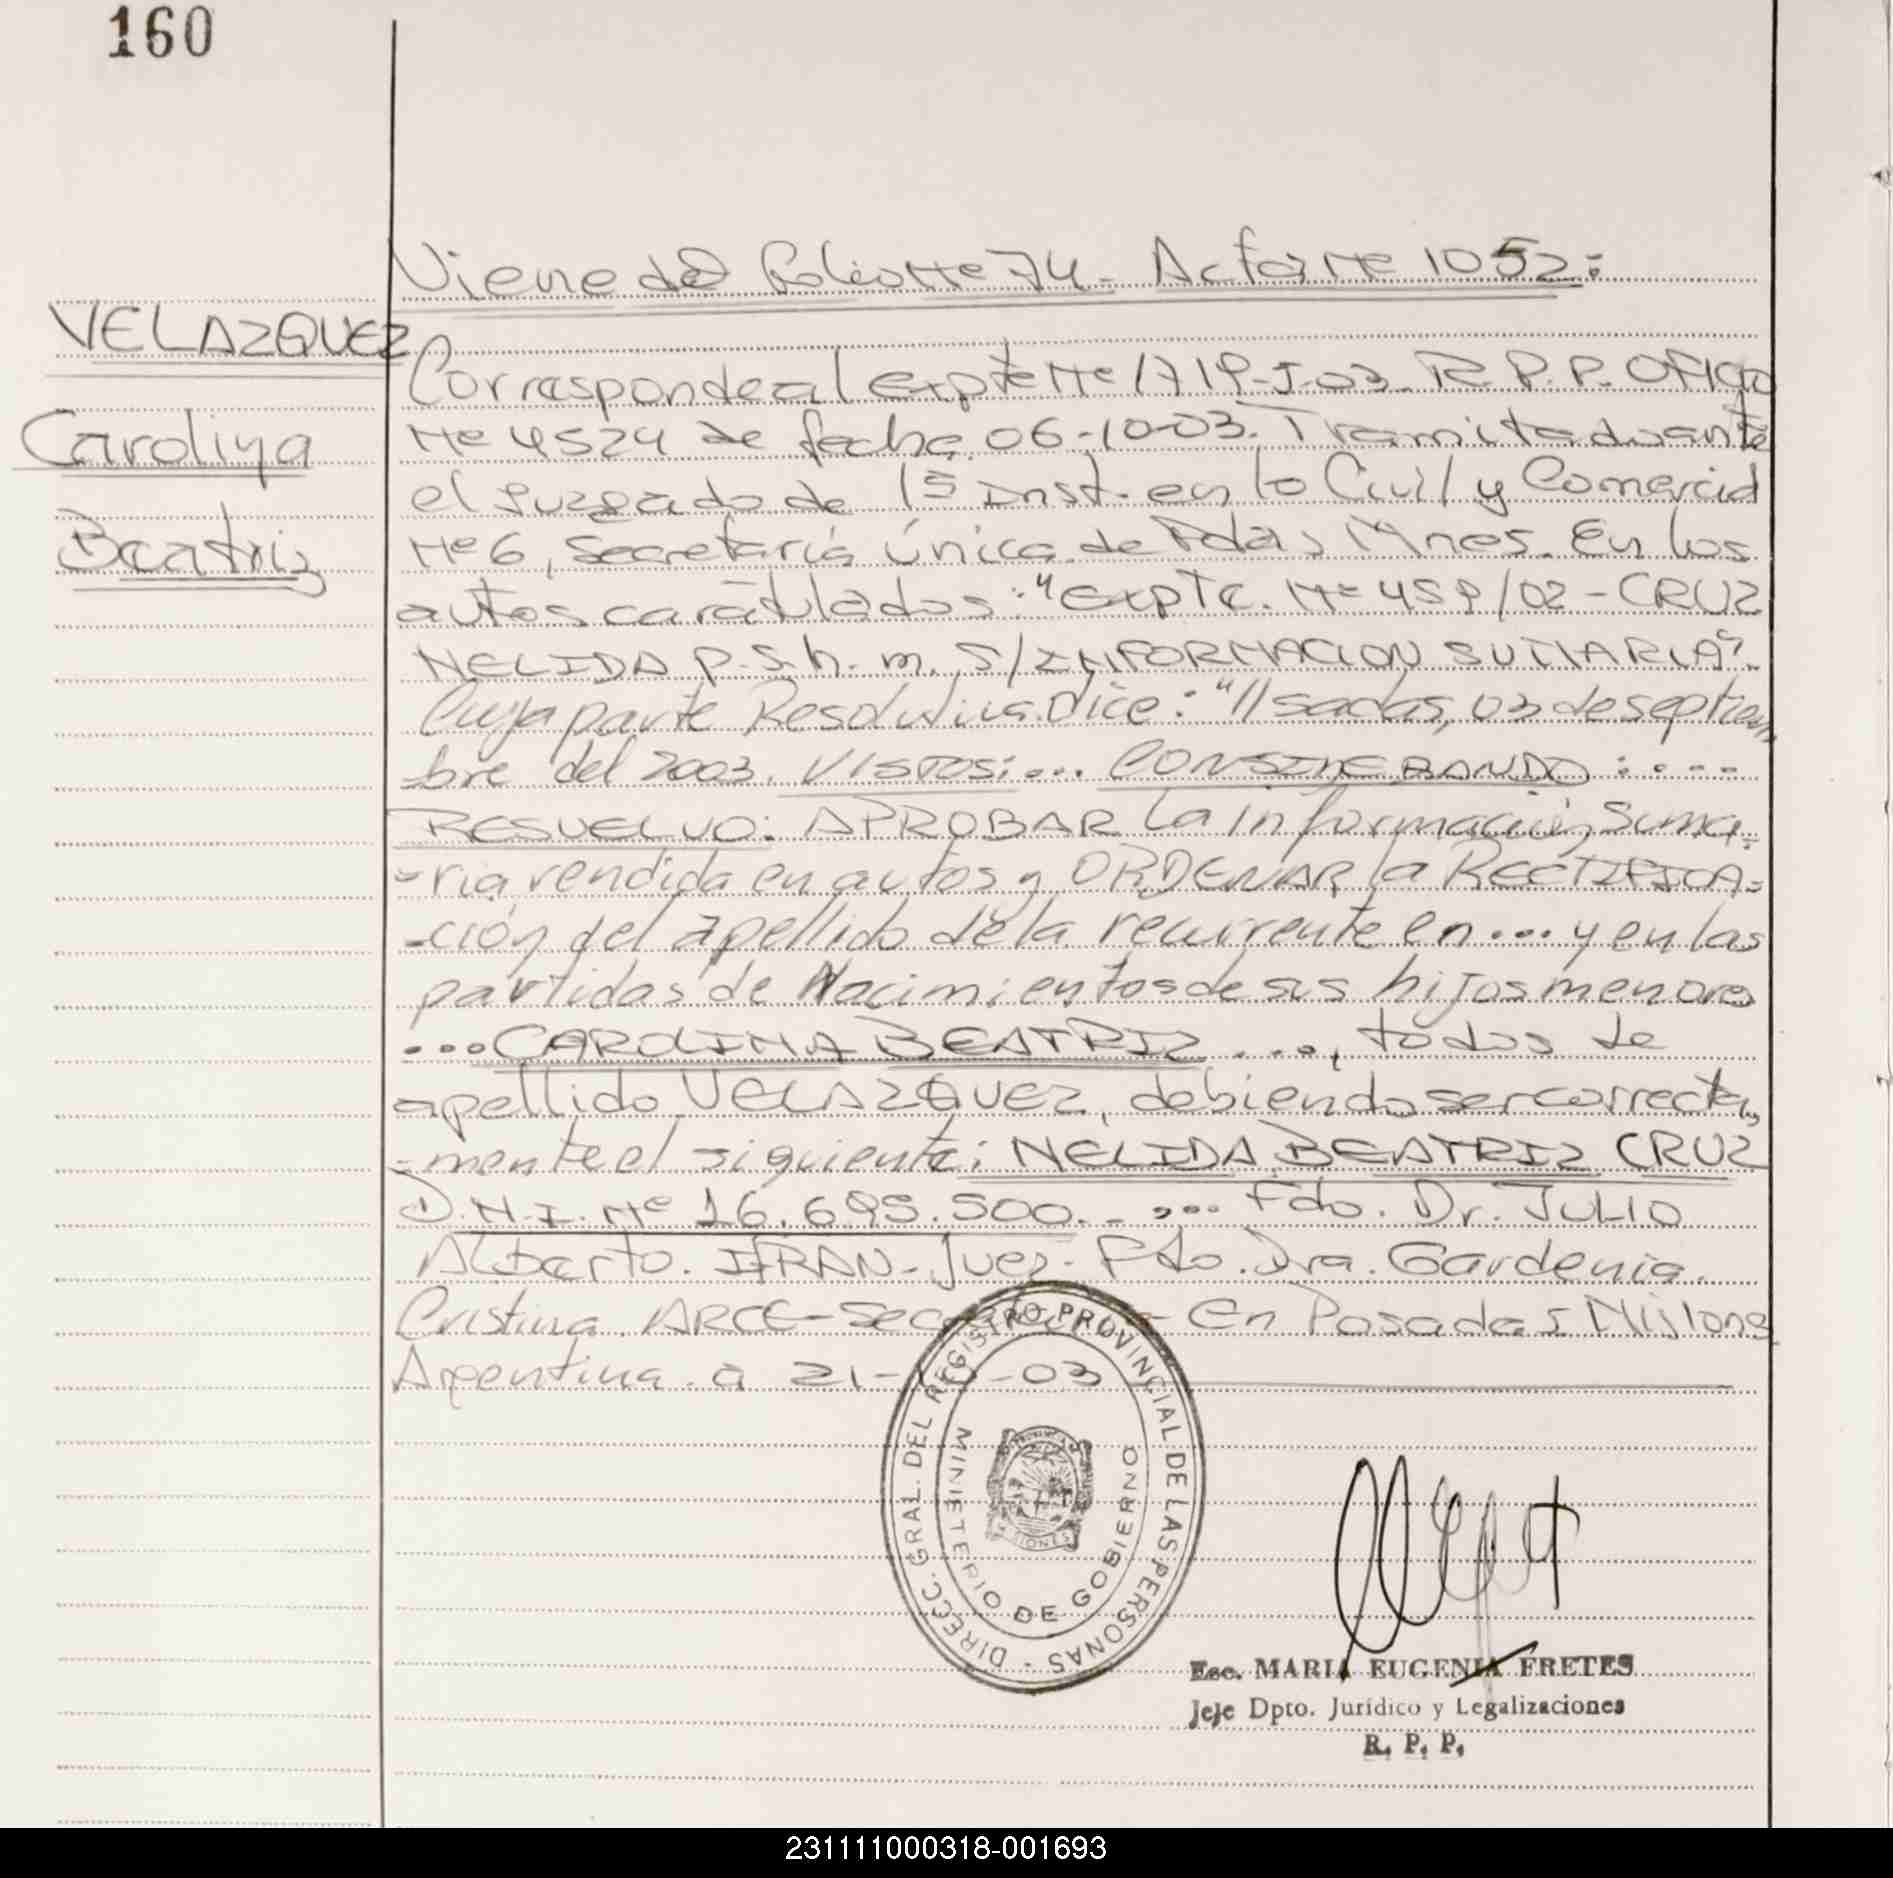 160
Viene del Folio Nº 74. Acta Nº 1052:
VELAZQUEZ
Carolina
Beatriz
Corresponde al expte Nº 1719-J-03. R.P.P. OFICIO
Nº 4524 de fecha 06-10-03. Tramitado ante
el Juzgado de 1ª Inst. en lo Civil y Comercial
Nº 6, Secretaría única de Pdas, Mnes. En los
autos caratulados: "Expte. Nº 459/02 - CRUZ
NELIDA p.s.h.m. S/INFORMACION SUMARIA".
Cuya parte Resolutiva dice: "//sadas, 03 de septiem
bre del 2003. VISTOS:... CONSIDERANDO:....
RESUELVO: APROBAR la información suma-
-ria rendida en autos y ORDENAR la RECTIFICA-
-ción del apellido de la recurrente en... y en las
partidas de Nacimientos de sus hijos menores
...CAROLINA BEATRIZ...., todos de
apellido VELAZQUEZ, debiendo ser correcta-
-mente el siguiente: NELIDA BEATRIZ CRUZ
D.N.I. Nº 16.695.500.- ,... Fdo. Dr. JULIO
Alberto. IFRAN- Juez- Fdo. Dra. Gardenia
Cristina ARCE- - En Posadas Misiones
Argentina a 21- -03
DIRECC. GRAL. DEL REGISTRO PROVINCIAL DE LAS PERSONAS -
MINISTERIO DE GOBIERNO
Esc. MARIA EUGENIA FRETES
Jefe Dpto. Jurídico y Legalizaciones
R. P. P.
231111000318-001693